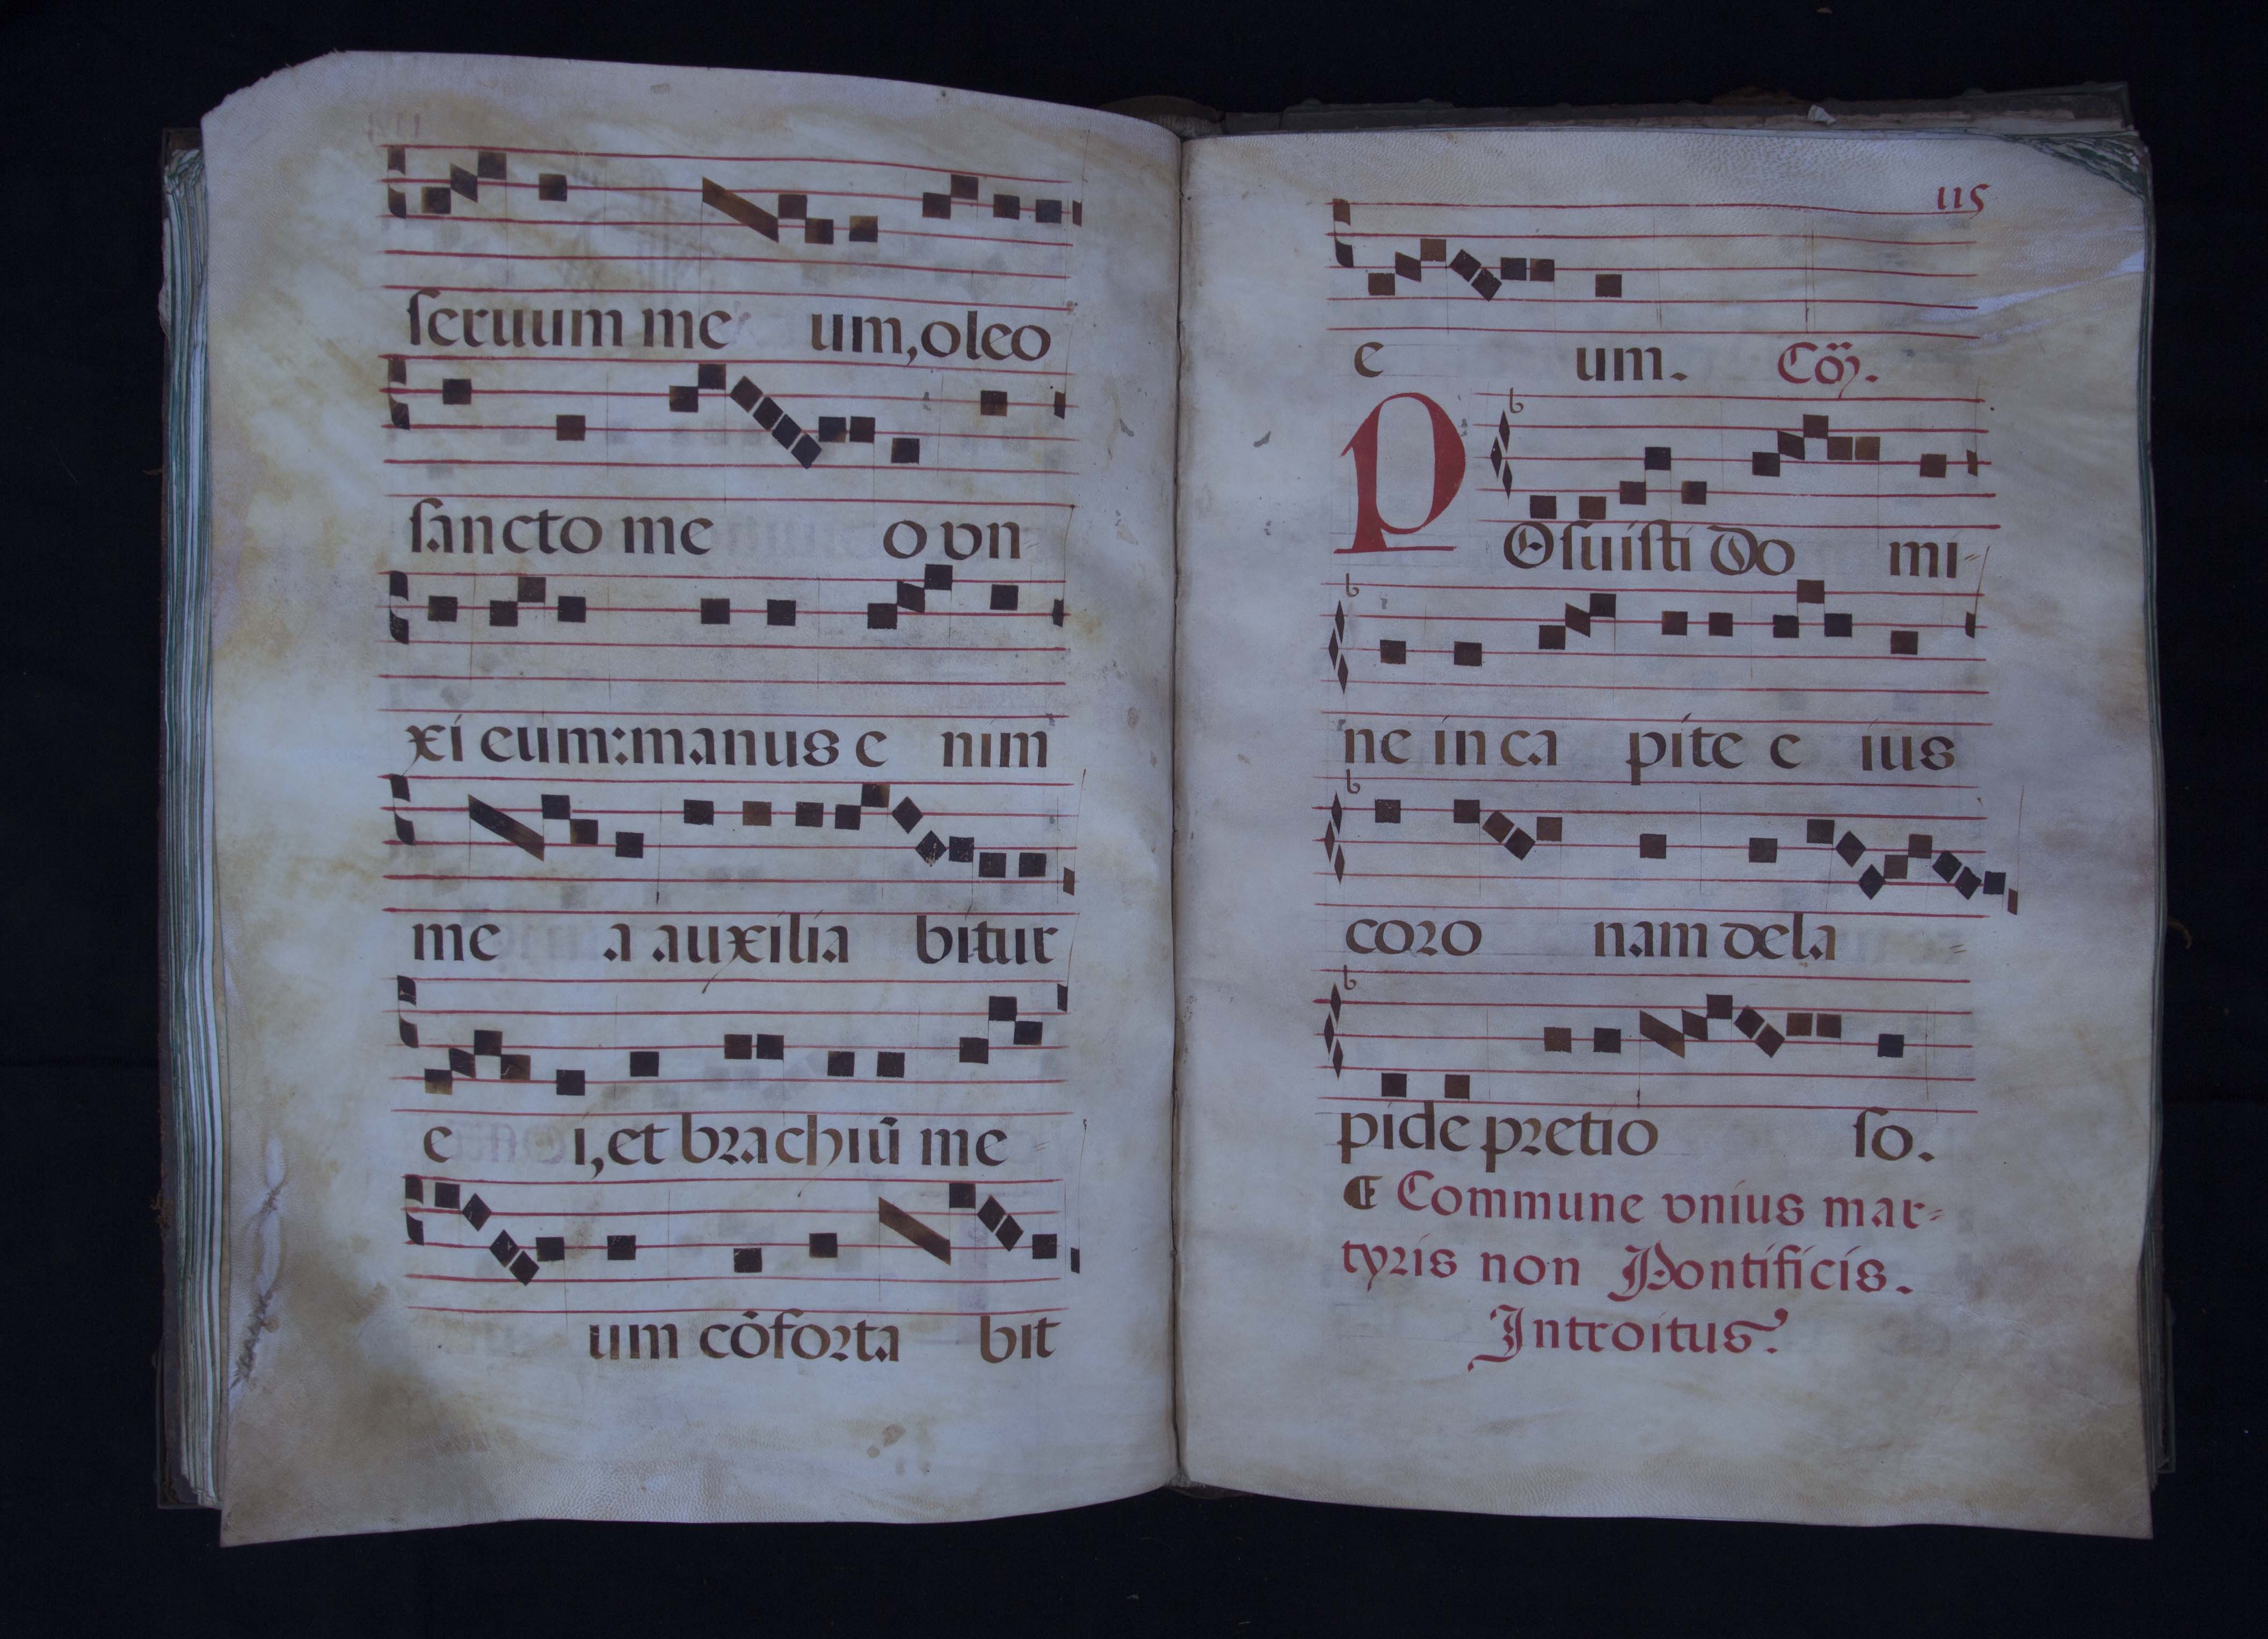 seruum me um, oleo
sancto me o vn=
xi eum: manus e nim
me a auxilia bitur
e i, et brachiũ me=
um cõforta bit
115
e um. Cõ.
POsuisti Do mi=
ne in ca pite e ius
coro nam de la=
pide pretio so.
Commune vnius mar=
tyris non Pontificis.
Introitus.